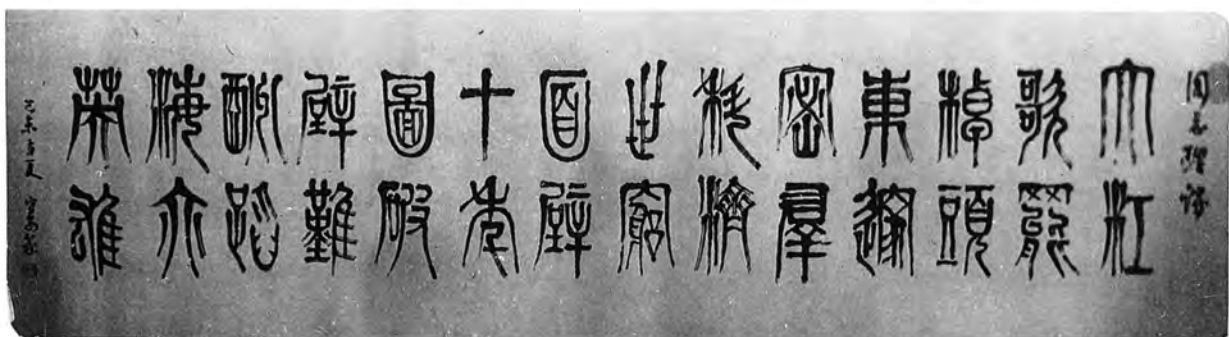 周总理詩
大江
歌罷
棹頭
東邃
密羣
科濟
世窮
面壁
十年
圖破
壁難
酬蹈
海亦
英雄
己未夏